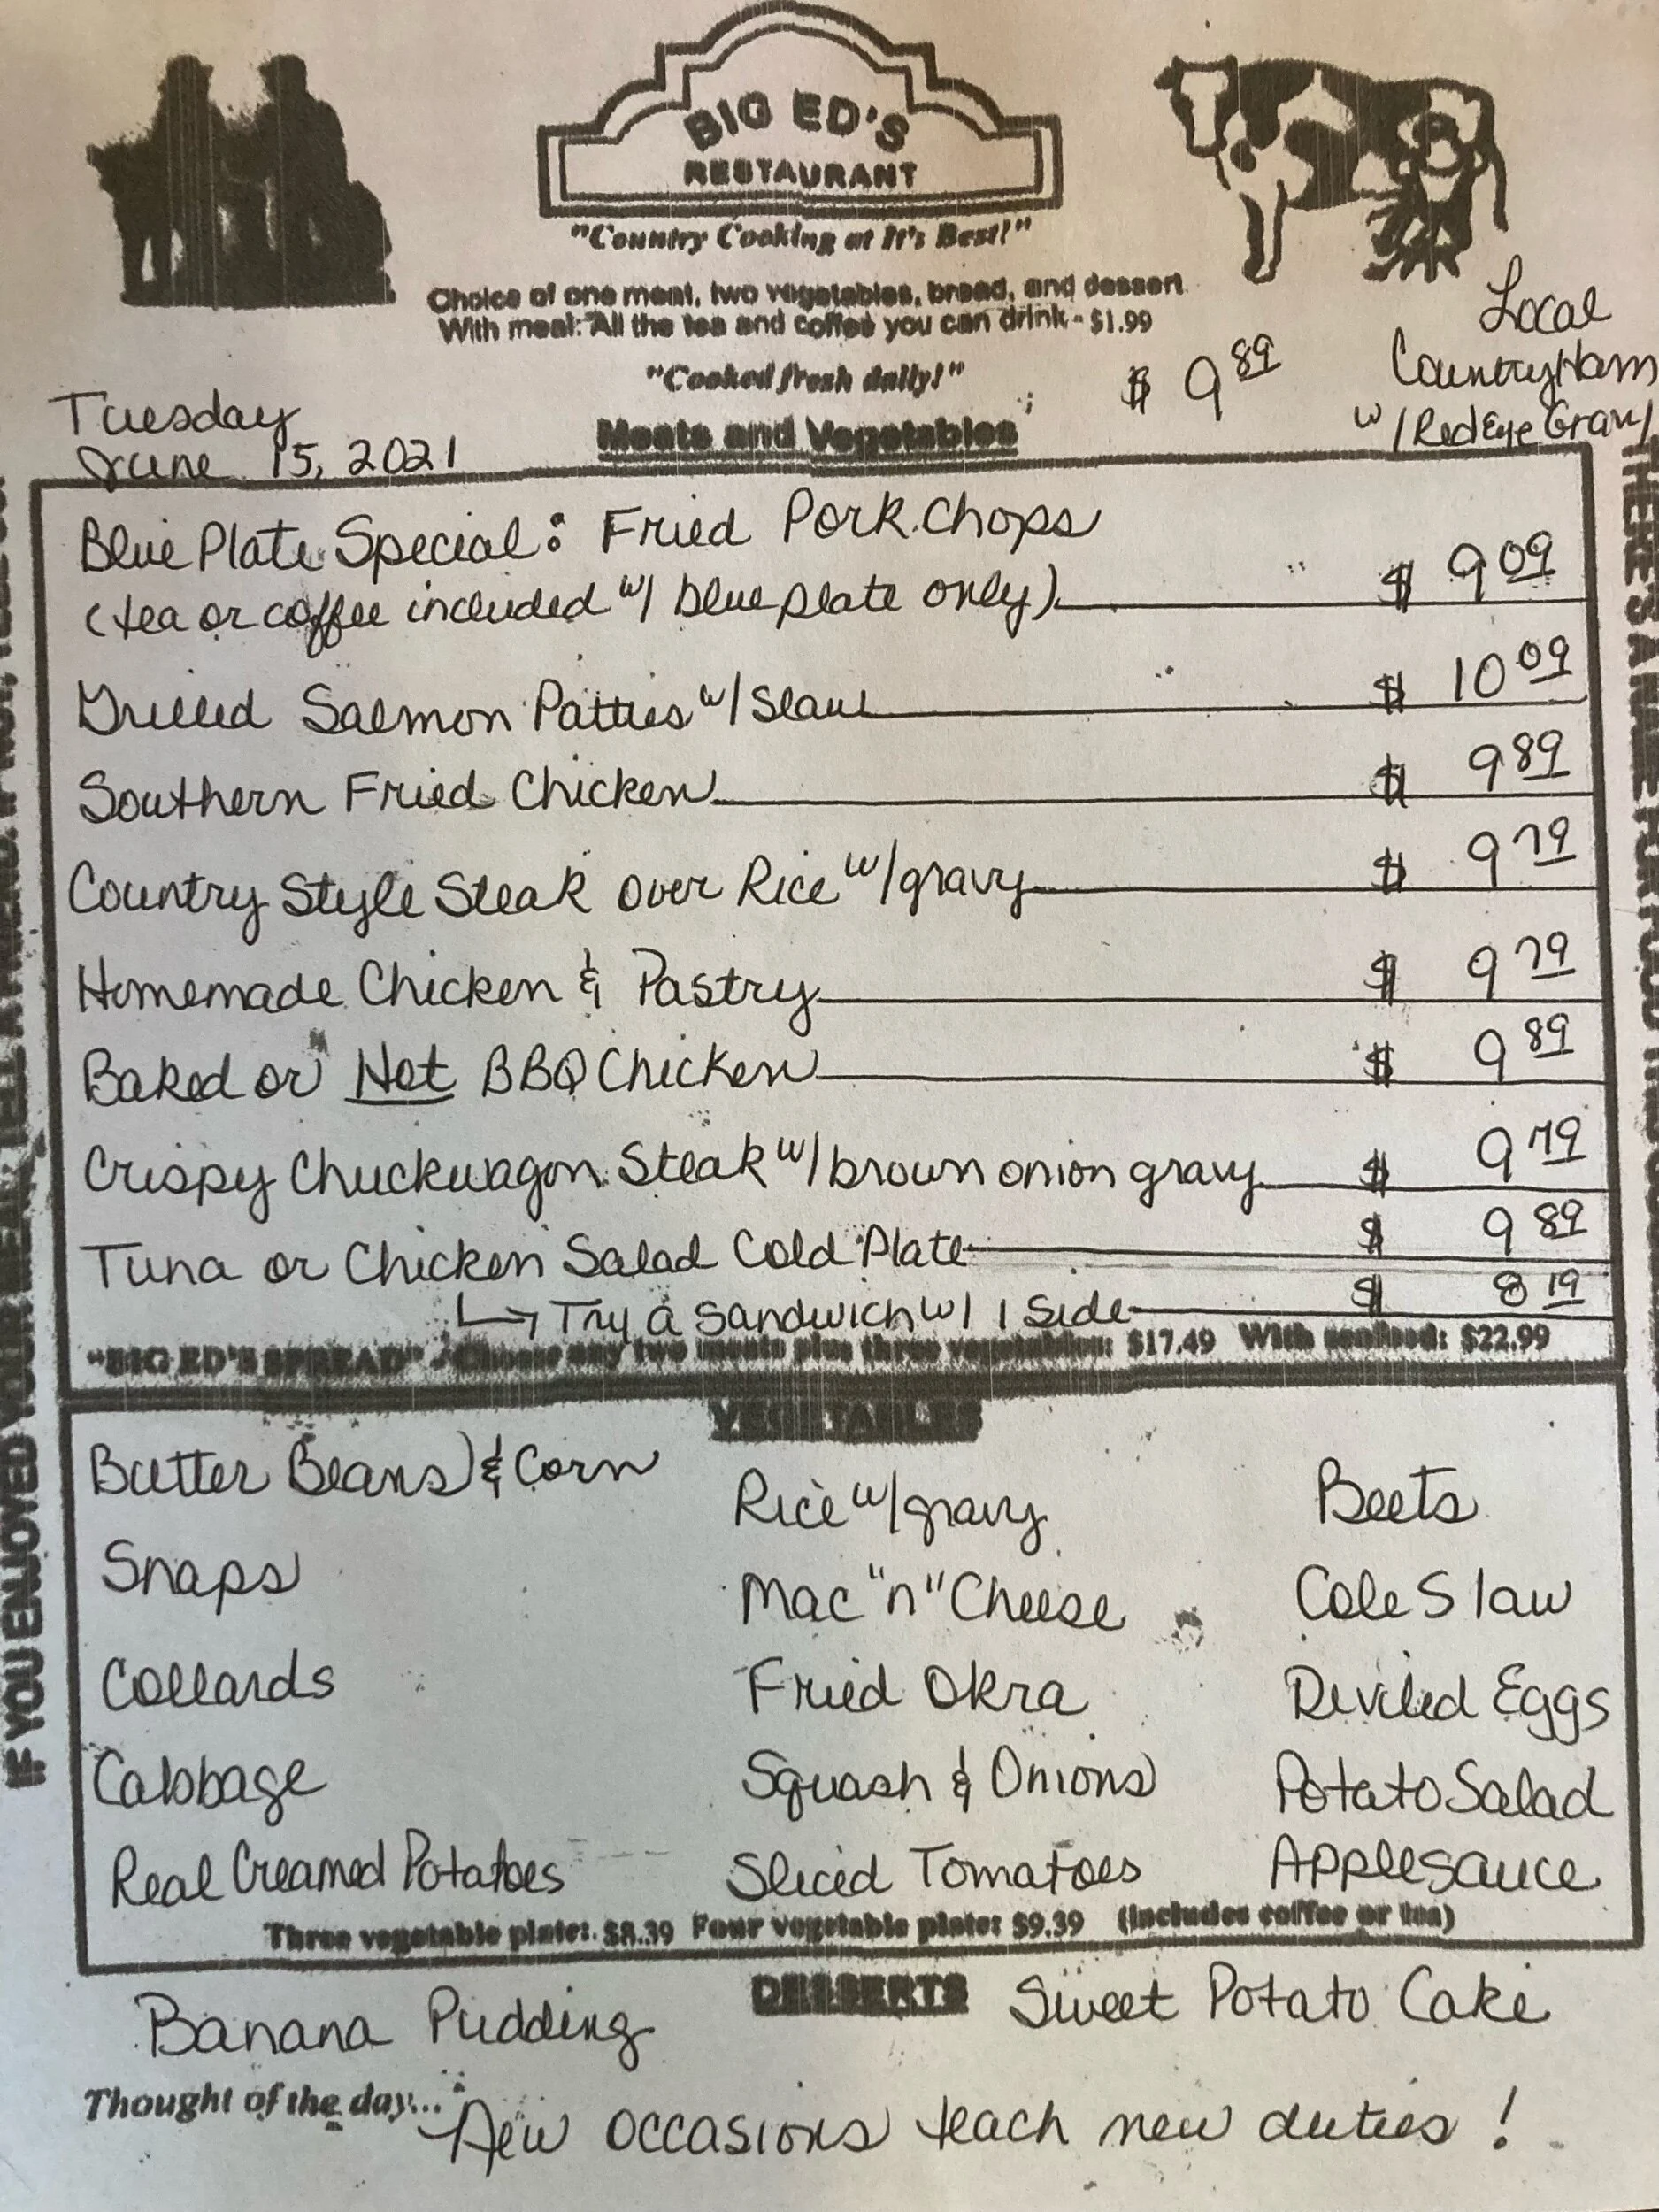 BIG ED'S
RESTAURANT
"Country Cooking at It's Best!"
Choice of one meat, two vegetables, bread, and dessert
With meal: All the tea and coffee you can drink - $1.99
"Cooked fresh daily!"
$ 9 89
Local
Country Ham
w/ Red Eye Gravy
Tuesday
June 15, 2021
Meats and Vegetables
Blue Plate Special: Fried Pork Chops
(tea or coffee included w/ blue plate only) $ 9 09
Grilled Salmon Patties w/ Slaw $ 10 09
Southern Fried Chicken $ 9 89
Country Style Steak over Rice w/ gravy $ 9 79
Homemade Chicken & Pastry $ 9 79
Baked or Hot BBQ Chicken $ 9 89
Crispy Chuckwagon Steak w/ brown onion gravy $ 9 79
Tuna or Chicken Salad Cold Plate $ 9 89
↳ Try a sandwich w/ 1 side $ 8 19
"BIG ED'S SPREAD" - Choose any two meats plus three vegetables: $17.49 With seafood: $22.99
VEGETABLES
Butter Beans & Corn
Snaps
Collards
Cabbage
Real Creamed Potatoes
Rice w/ gravy
Mac "n" Cheese
Fried Okra
Squash & Onions
Sliced Tomatoes
Beets
Cole Slaw
Deviled Eggs
Potato Salad
Applesauce
Three vegetable plate: $8.39 Four vegetable plate: $9.39 (Includes coffee or tea)
DESSERTS
Banana Pudding
Sweet Potato Cake
Thought of the day... New occasions teach new duties!
IF YOU ENJOYED YOUR MEAL, TELL A FRIEND. IF NOT,
THERE'S A NAME FOR FOOD